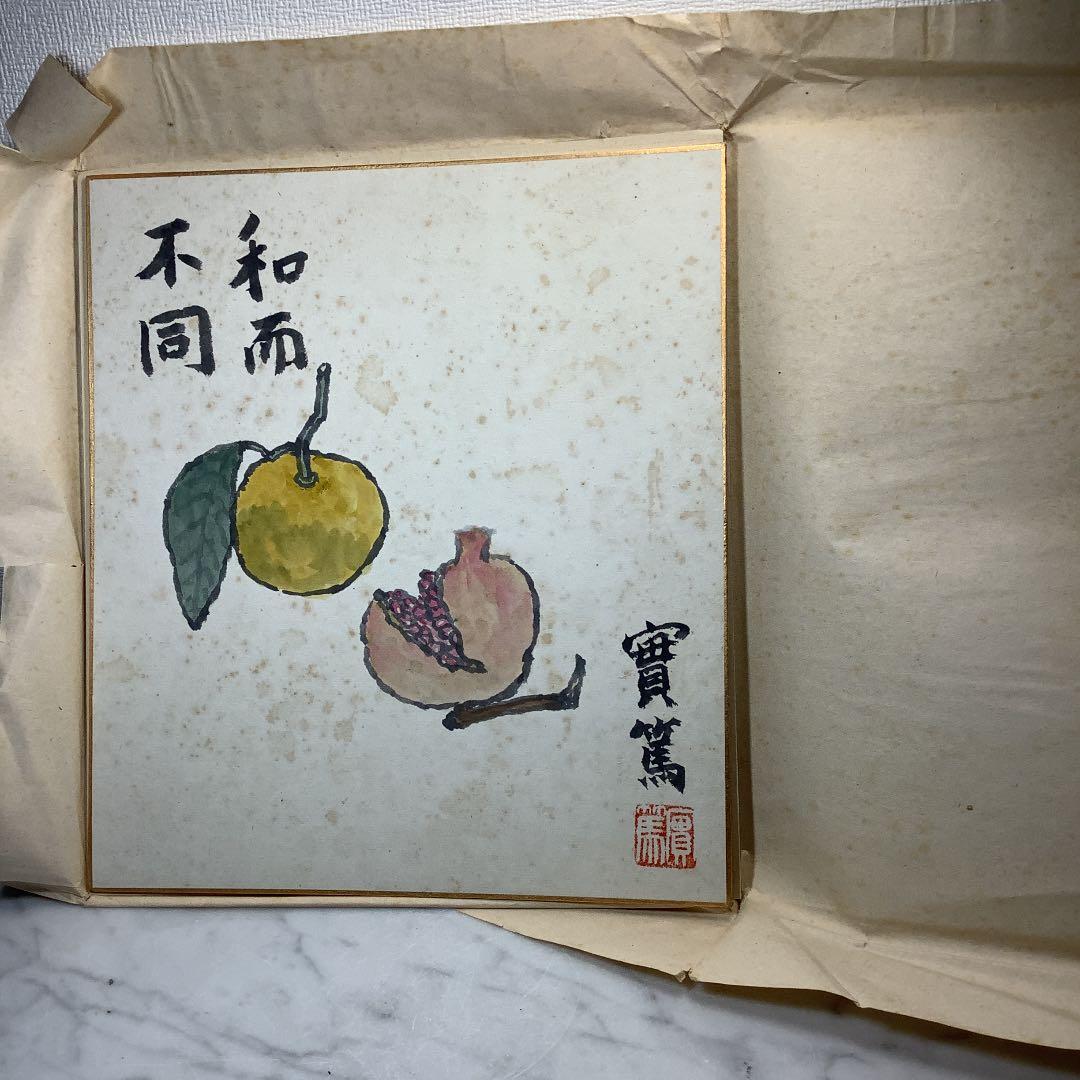 和而
不同
實篤
實篤